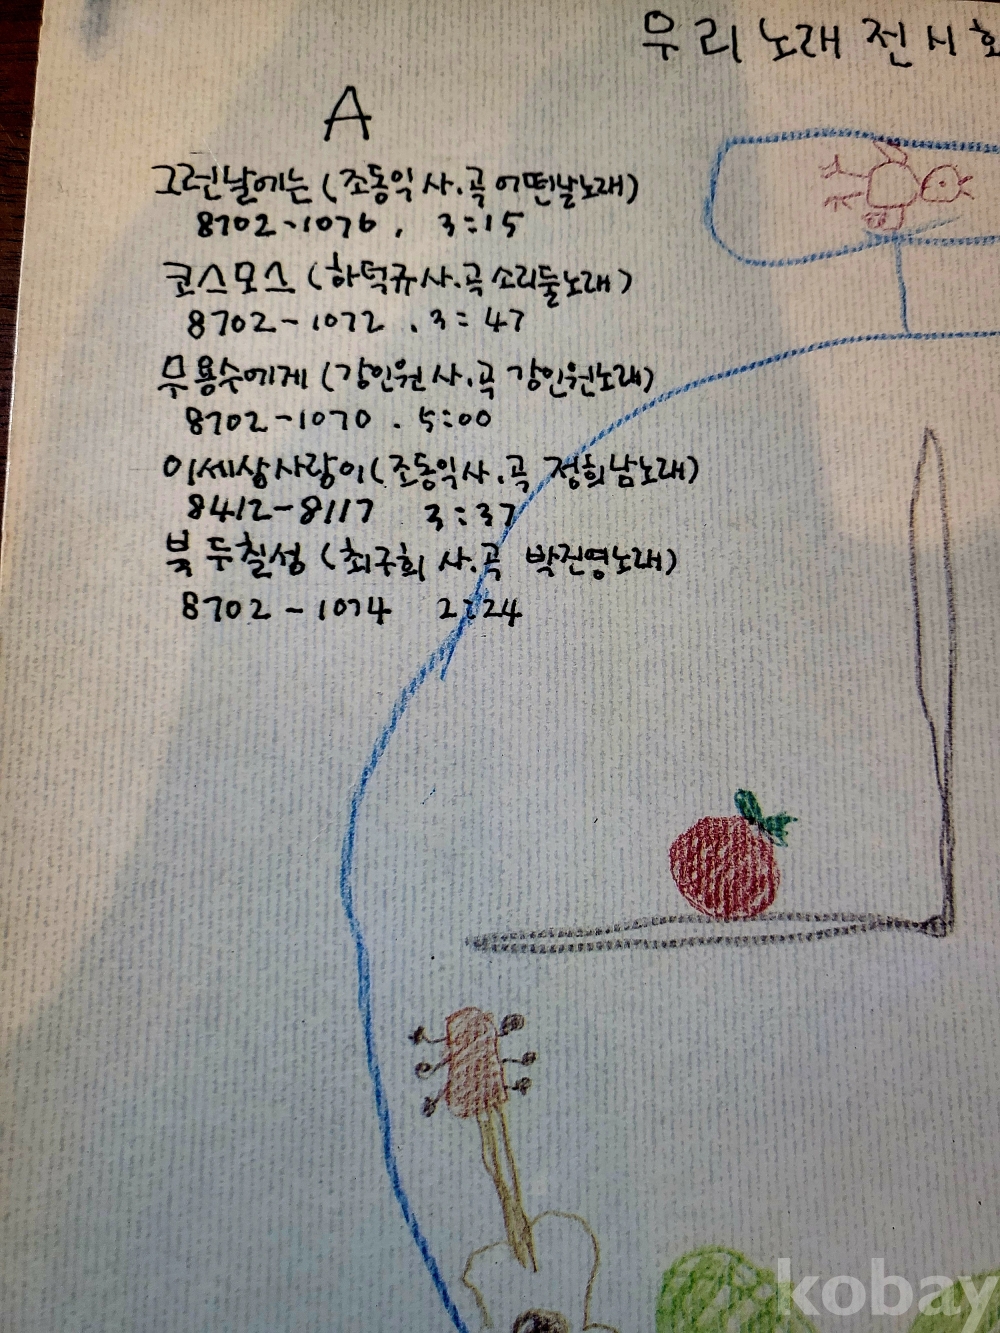 우리노래전시회
A
그런날에는 (조동익 사.곡 어떤날노래)
8702-1076, 3:15
코스모스 (하덕규사.곡 소리둘노래)
8702-1072 . 3:47
무용수에게 (강인원 사.곡 강인원노래)
8702-1070 . 5:00
이세상사랑이 (조동익사.곡 정희남노래)
8412-8117 3:37
북두칠성 (최구희 사.곡 박진영노래)
8702-1074 2:24
kobay